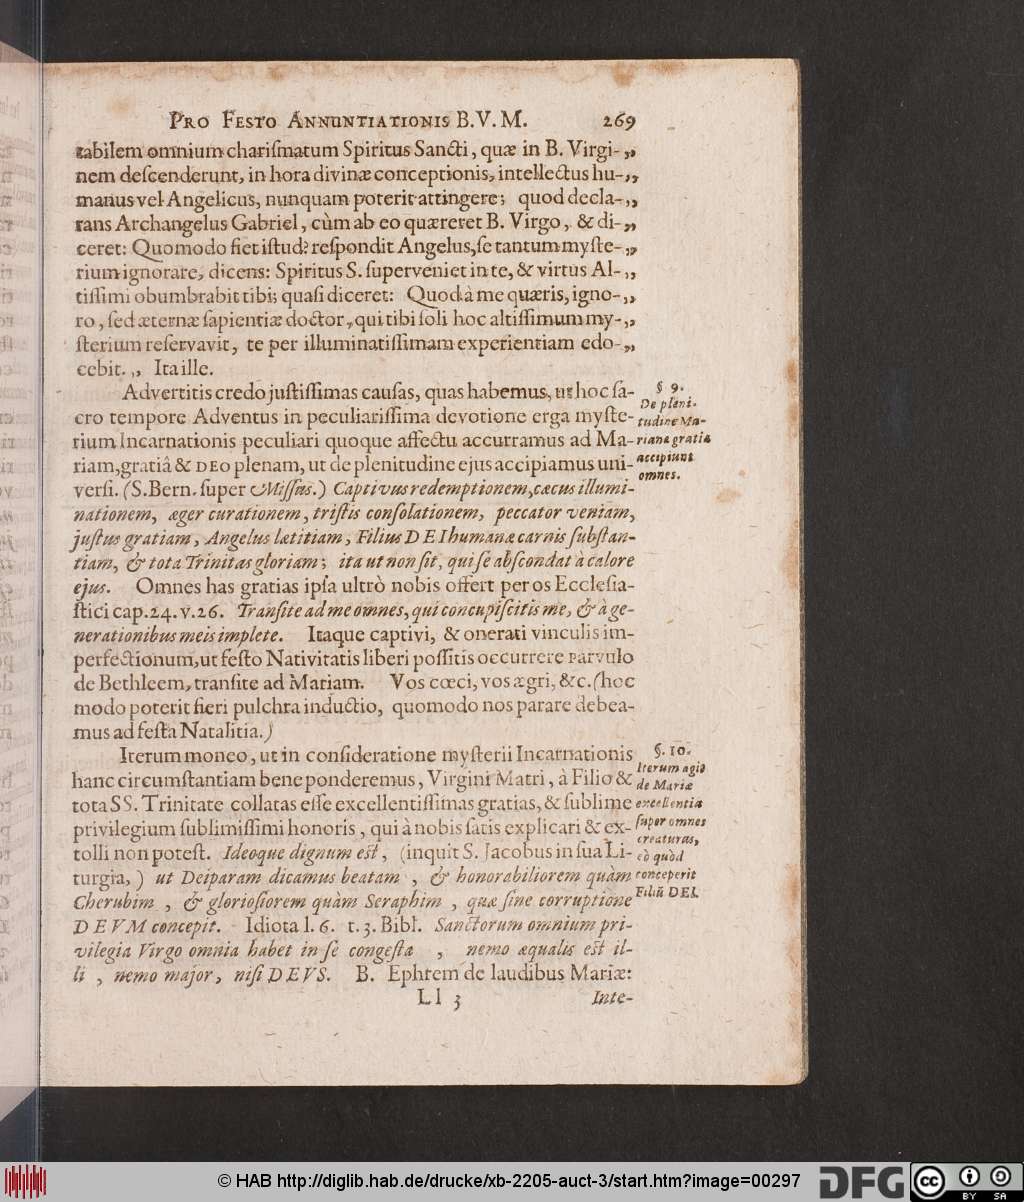 PRO FESTO ANNUNTIATIONIS B.V.M. 269
tabilem omnium chariſmatum Spiritus Sancti, quæ in B. Virgi-„
nem deſcenderunt, in hora divinæ conceptionis, intellectus hu-„
manus vel Angelicus, nunquam poterit attingere; quod decla-„
rans Archangelus Gabriel, cùm ab eo quæreret B. Virgo, & di-„
ceret: Quomodo fiet iſtud? reſpondit Angelus, ſe tantum myſte-„
rium ignorare, dicens: Spiritus S. ſuperveniet in te, & virtus Al-„
tiſſimi obumbrabit tibi; quaſi diceret: Quod à me quæris, igno-„
ro, ſed æternæ ſapientiæ doctor, qui tibi ſoli hoc altiſſimum my-„
ſterium reſervavit, te per illuminatiſſimam experientiam edo-„
cebit. „ Ita ille.
Advertitis credo juſtiſſimas cauſas, quas habemus, ut hoc ſa-
cro tempore Adventus in peculiariſſima devotione erga myſte-
rium Incarnationis peculiari quoque affectu accurramus ad Ma-
riam, gratiâ & DEO plenam, ut de plenitudine ejus accipiamus uni-
verſi. (S. Bern. ſuper Miſſus.) Captivus redemptionem, cæcus illumi-
nationem, æger curationem, triſtis conſolationem, peccator veniam,
juſtus gratiam, Angelus lætitiam, Filius DEI humanæ carnis ſubſtan-
tiam, & tota Trinitas gloriam; ita ut non ſit, qui ſe abſcondat à calore
ejus. Omnes has gratias ipſa ultrò nobis offert per os Eccleſia-
ſtici cap. 24. v. 26. Tranſite ad me omnes, qui concupiſcitis me, & à ge-
nerationibus meis implete. Itaque captivi, & onerati vinculis im-
perfectionum, ut feſto Nativitatis liberi poſſitis occurrere parvulo
de Bethleem, tranſite ad Mariam. Vos cœci, vos ægri, &c. (hoc
modo poterit fieri pulchra inductio, quomodo nos parare debea-
mus ad feſta Natalitia.)
§ 9.
De pleni-
tudine Ma-
rianæ gratiæ
accipiunt
omnes.
Iterum moneo, ut in conſideratione myſterii Incarnationis
hanc circumſtantiam bene ponderemus, Virgini Matri, à Filio &
tota SS. Trinitate collatas eſſe excellentiſſimas gratias, & ſublime
privilegium ſublimiſſimi honoris, qui à nobis ſatis explicari & ex-
tolli non poteſt. Ideoque dignum eſt, (inquit S. Jacobus in ſua Li-
turgia,) ut Deiparam dicamus beatam, & honorabiliorem quàm
Cherubim, & glorioſiorem quàm Seraphim, quæ ſine corruptione
DEVM concepit. Idiota l. 6. t. 3. Bibl. Sanctorum omnium pri-
vilegia Virgo omnia habet in ſe congeſta, nemo æqualis eſt il-
li, nemo major, niſi DEVS. B. Ephrem de laudibus Mariæ:
§. 10.
Iterum agit
de Mariæ
excellentia
ſuper omnes
creaturas,
eò quòd
conceperit
Filiũ DEI.
Ll 3 Inte-
© HAB http://diglib.hab.de/drucke/xb-2205-auct-3/start.htm?image=00297
DFG
cc BY SA